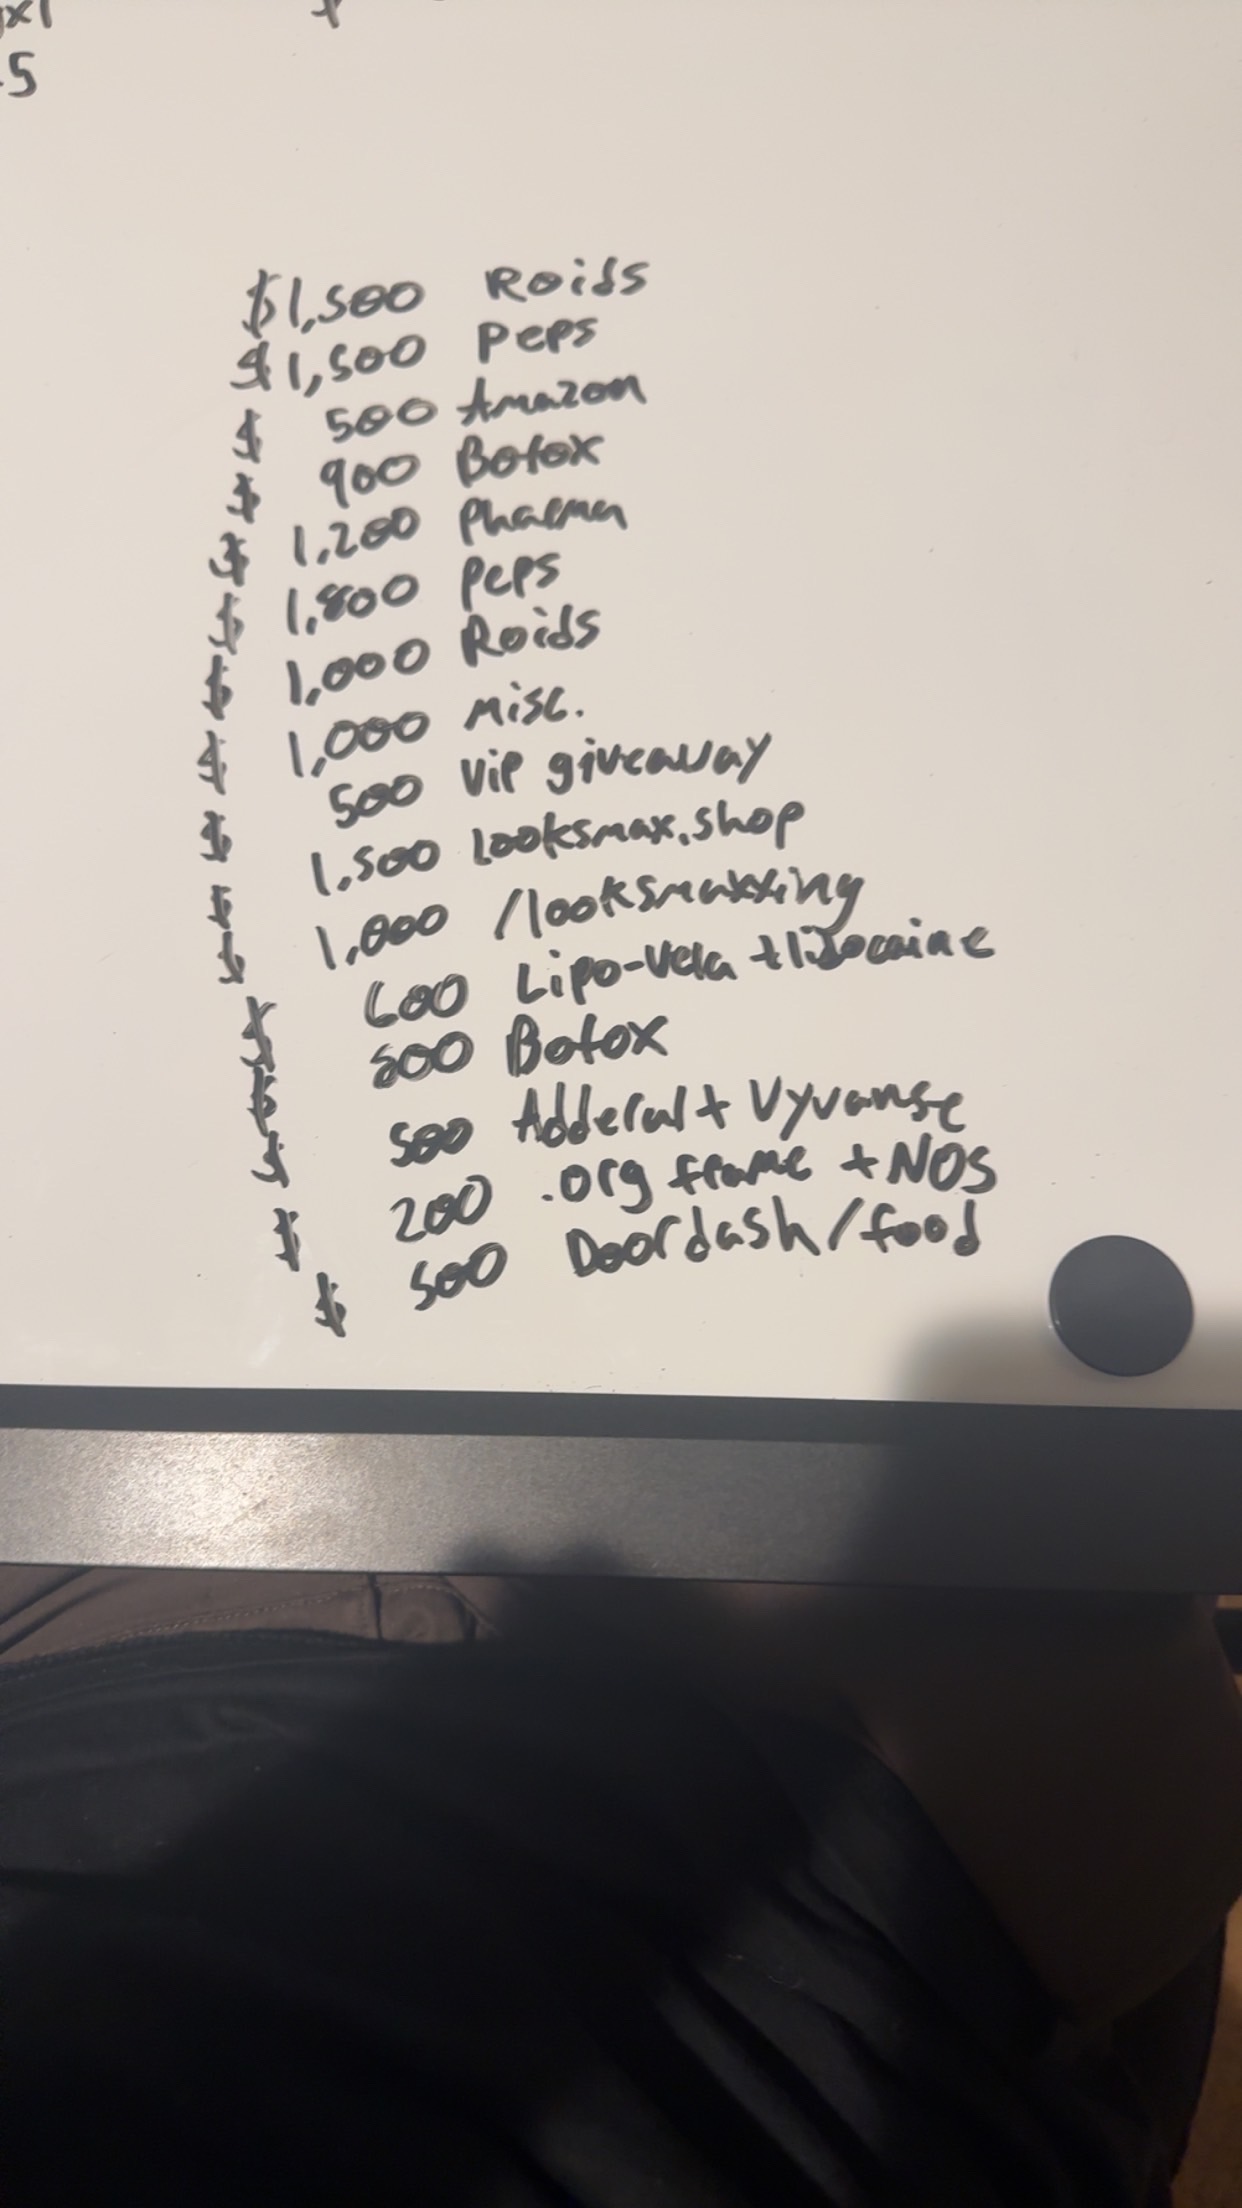 5
$1,500 Roids
$1,500 Peps
$ 500 Amazon
$ 900 Botox
$ 1,200 Pharma
$ 1,800 Peps
$ 1,000 Roids
$ 1,000 misc.
$ 500 ViP giveaway
$ 1,500 Looksmax.shop
$ 1,000 /looksmaxxing
$ 600 Lipo-Vela + lidocaine
$ Botox
$ 500 Adderal + Vyvanse
$ 200 .org frame + NOS
$ 500 Doordash/food